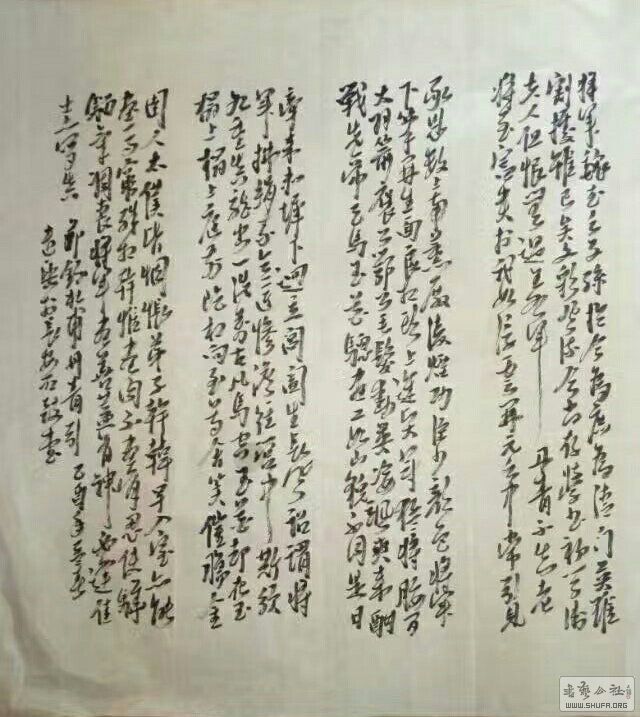 将军魏武之子孫於今為庶為清门英雄
割據雖已矣文彩风流今尚存学書初学衛
夫人但恨無過王右军 丹青不知老
将至富贵於我如浮雲開元之中常引見
承恩数上南薰殿凌煙功臣少颜色将军
下笔開生面良相头上進贤冠猛将腰间
大羽箭褒公鄂公毛髮動英姿飒爽来酣
戰先帝天马玉花骢画工如山貌不同是日
牵来赤墀下迥立阊阖生長风詔謂将
军拂絹素意匠惨澹经营中斯须
九重真龙出一洗萬古凡马空玉花却在御
榻上榻上庭前屹相向至尊含笑催赐金
圉人太僕皆惆怅弟子韓幹早入室亦能
画马窮殊相幹惟画肉不画骨忍使骅
骝气凋丧将军画善盖有神必逢佳
士亦写真 節錄杜甫丹青引 乙酉年
於長安
書藝公社
WWW.SHUFA.ORG